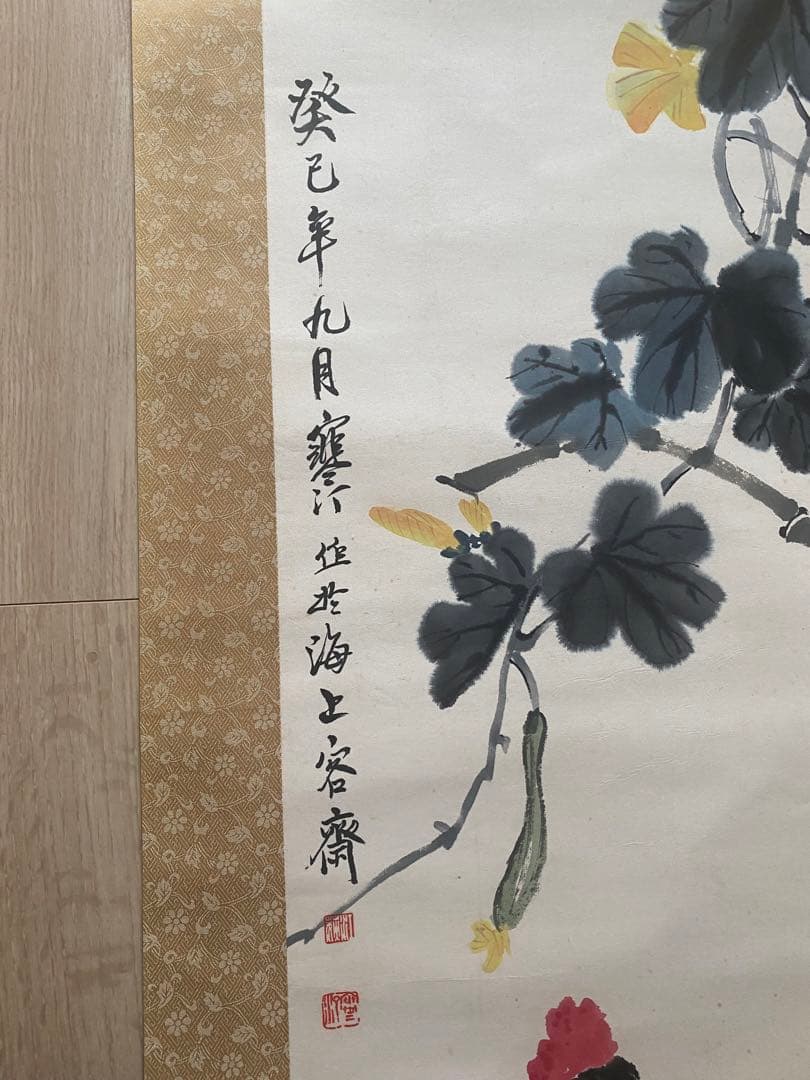 癸巳年九月寒汀作於海上容齋
寒汀